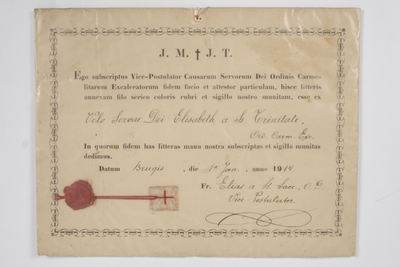 J. M. † J. T.
Ego subscriptus Vice-Postulator Causarum Servorum Dei Ordinis Carme-
litarum Excalceatorum fidem facio et attestor particulam, hisce litteris
annexam filo serico coloris rubri et sigillo nostro munitam, esse ex
Velo Servae Dei Elisabeth a SS. Trinitate,
Ord. Carm. Exc.
In quorum fidem has litteras manu nostra subscriptas et sigillo munitas
dedimus.
Datum Brugis, die Jan. anno 1914
Fr. Elias a
Vice Postulator.